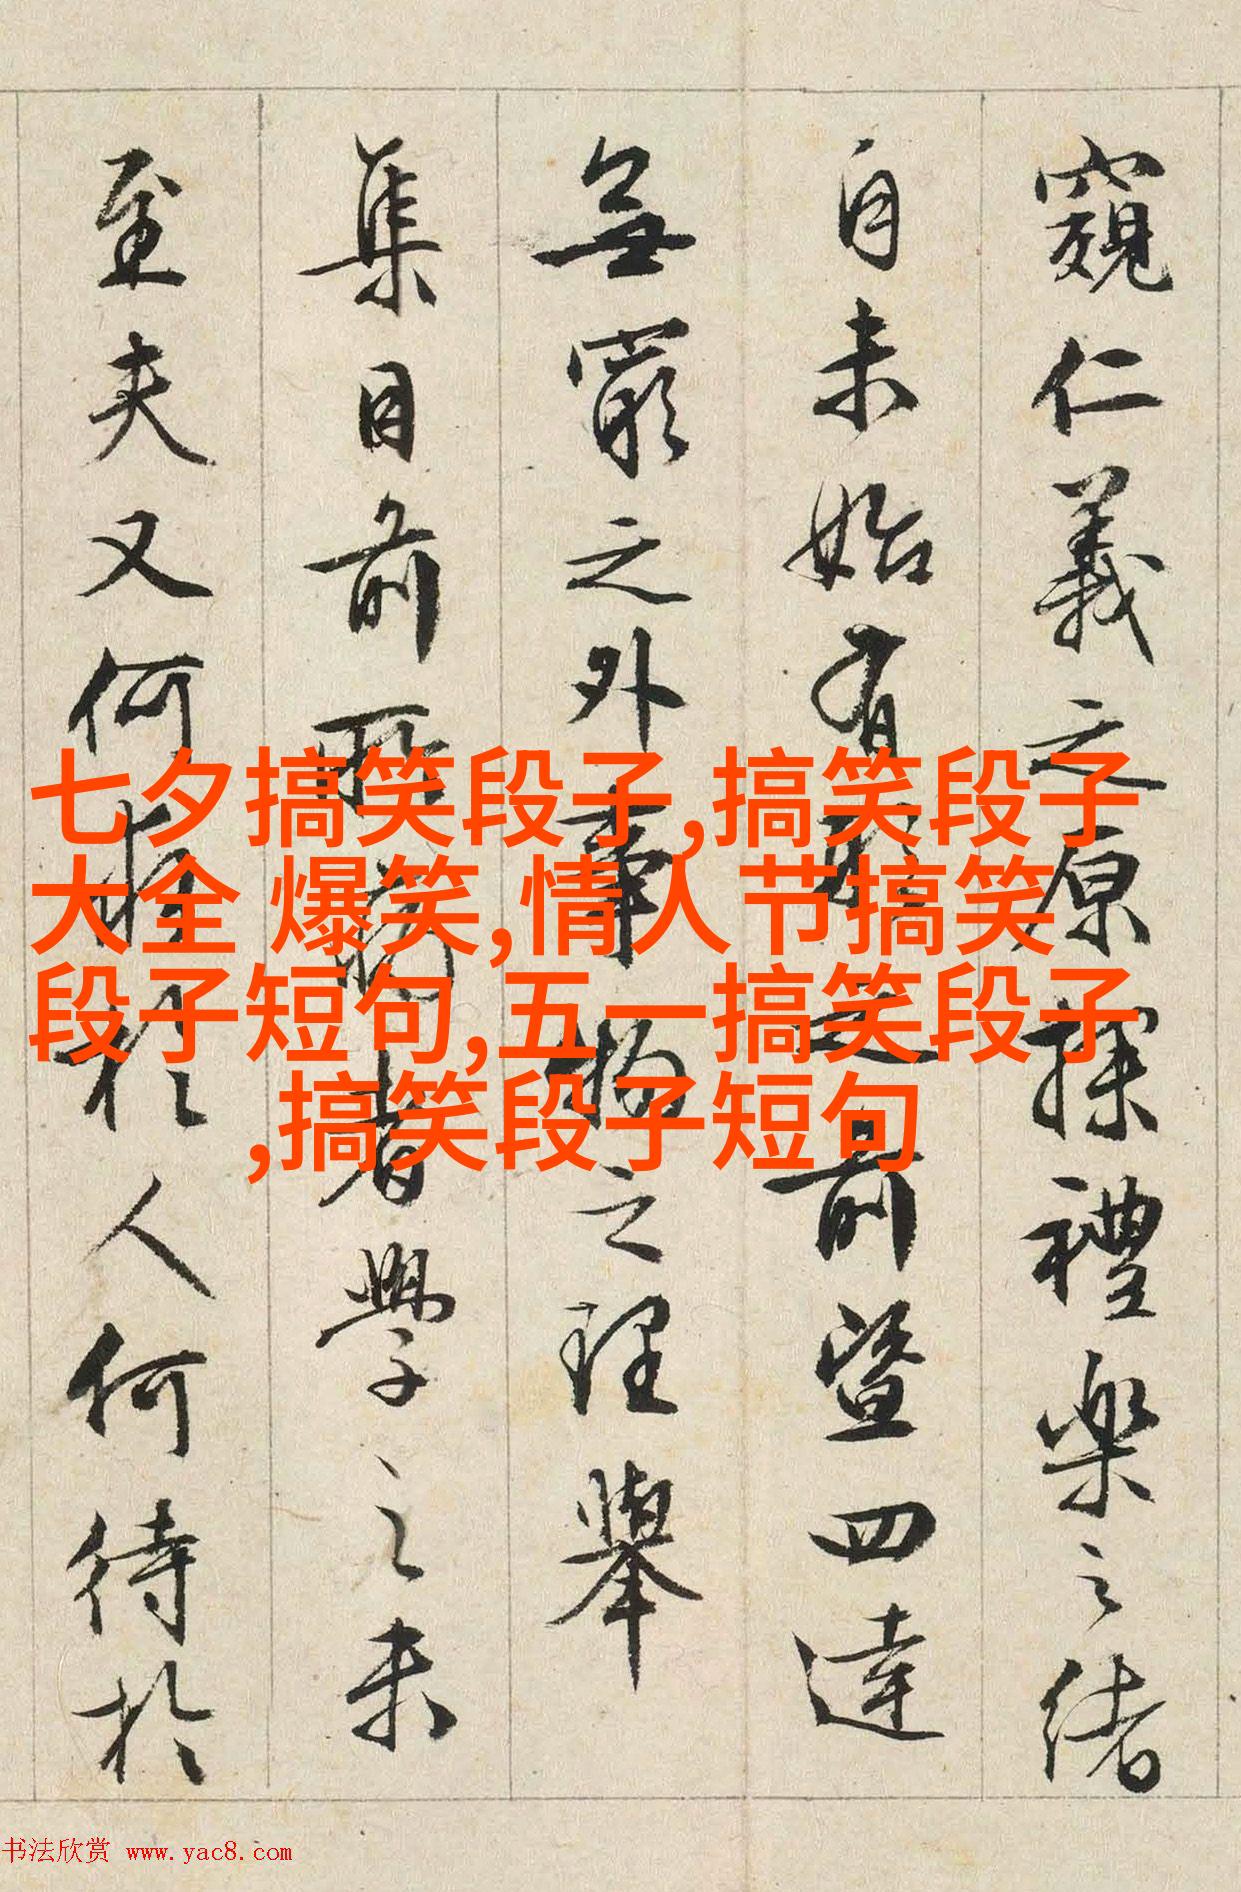 窺仁義之原探禮樂之緒
自未始有形之前暨四達
無窮之外事物之理舉
集目前所病者學之未
至夫又何於人何待於
七夕搞笑段子,搞笑段子
大全 爆笑,情人节搞笑
段子短句,五一搞笑段子
,搞笑段子短句
书法欣赏 www.yac8.com